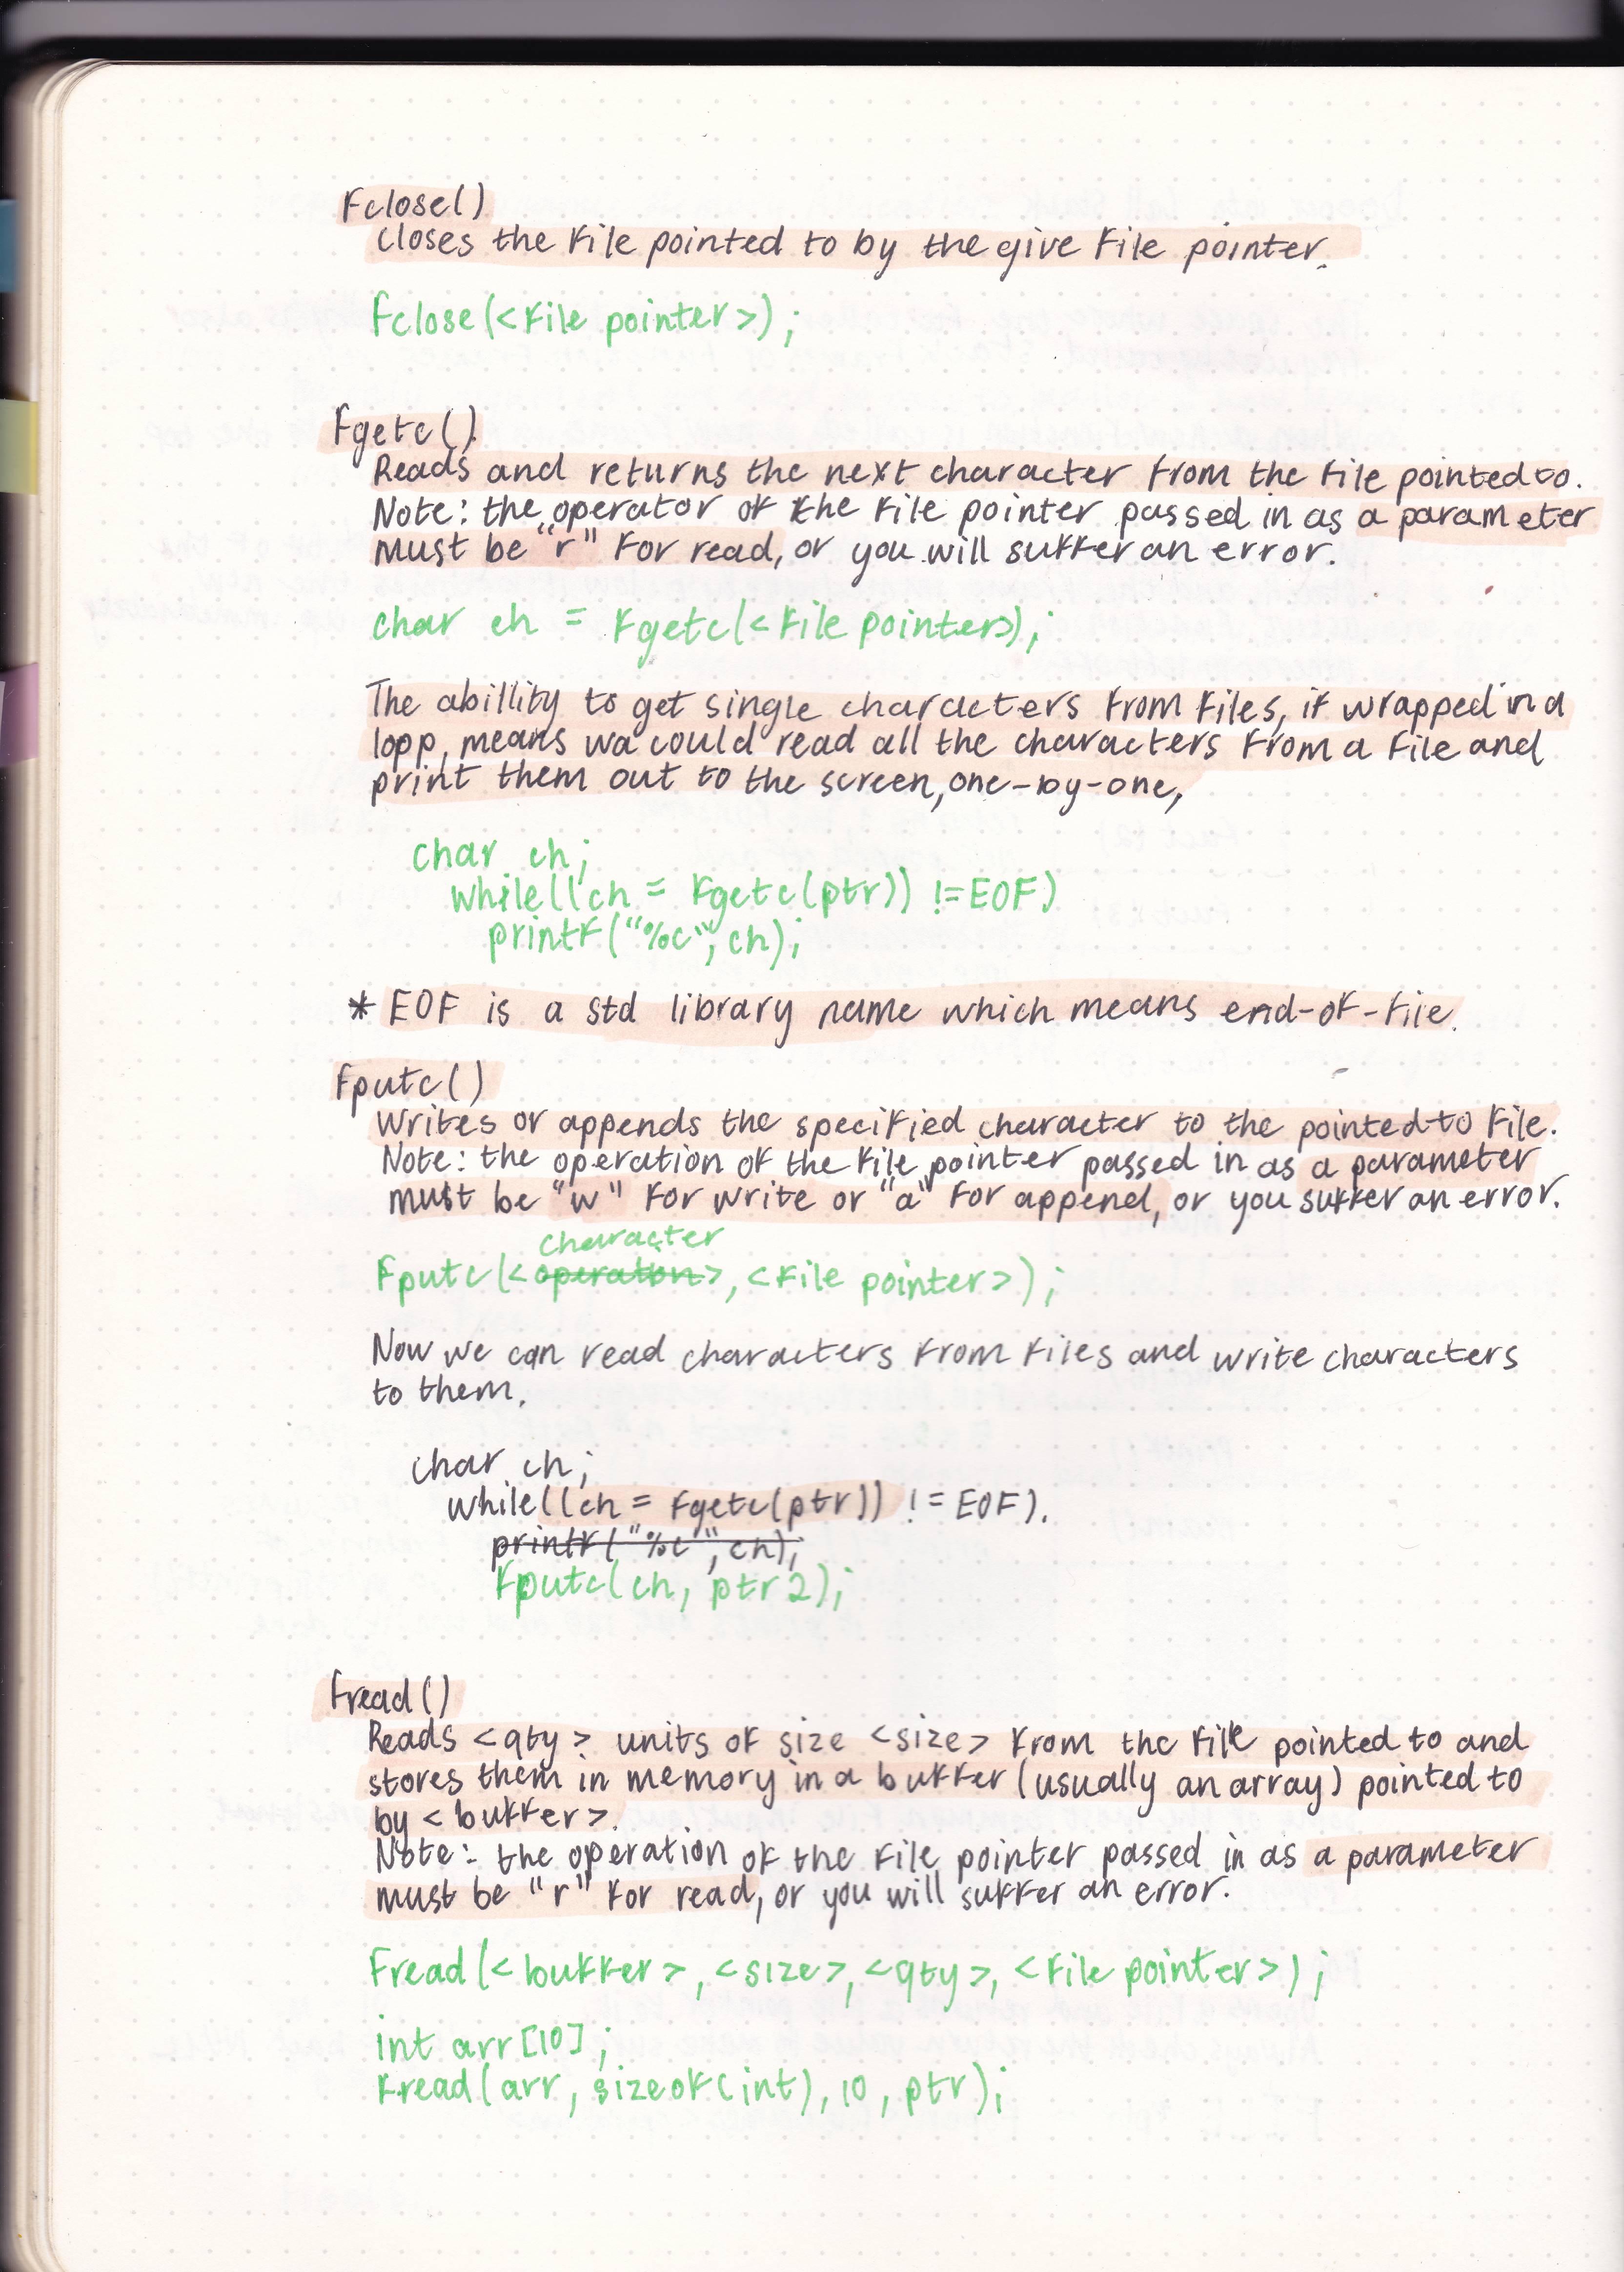 fclose()
closes the file pointed to by the give file pointer.
fclose(<file pointer>);
fgetc()
Reads and returns the next character from the file pointed to.
Note: the operator of the file pointer passed in as a parameter
must be "r" for read, or you will suffer an error.
char ch = fgetc(<file pointer>);
The abillity to get single characters from files, if wrapped in a
lopp, means wa could read all the characters from a file and
print them out to the screen, one-by-one,
char ch;
while((ch = fgetc(ptr)) != EOF)
printf("%c", ch);
* EOF is a std library name which means end-of-file.
fputc()
Writes or appends the specified character to the pointed-to file.
Note: the operation of the file pointer passed in as a parameter
must be "w" for write or "a" for append, or you suffer an error.
character
fputc(<operation>, <file pointer>);
Now we can read characters from files and write characters
to them.
char ch;
while((ch = fgetc(ptr)) != EOF).
printf("%c", ch);
fputc(ch, ptr2);
fread()
Reads <qty> units of size <size> from the file pointed to and
stores them in memory in a buffer (usually an array) pointed to
by <buffer>.
Note: the operation of the file pointer passed in as a parameter
must be "r" for read, or you will suffer an error.
fread(<buffer>, <size>, <qty>, <file pointer>);
int arr[10];
fread(arr, sizeof(int), 10, ptr);